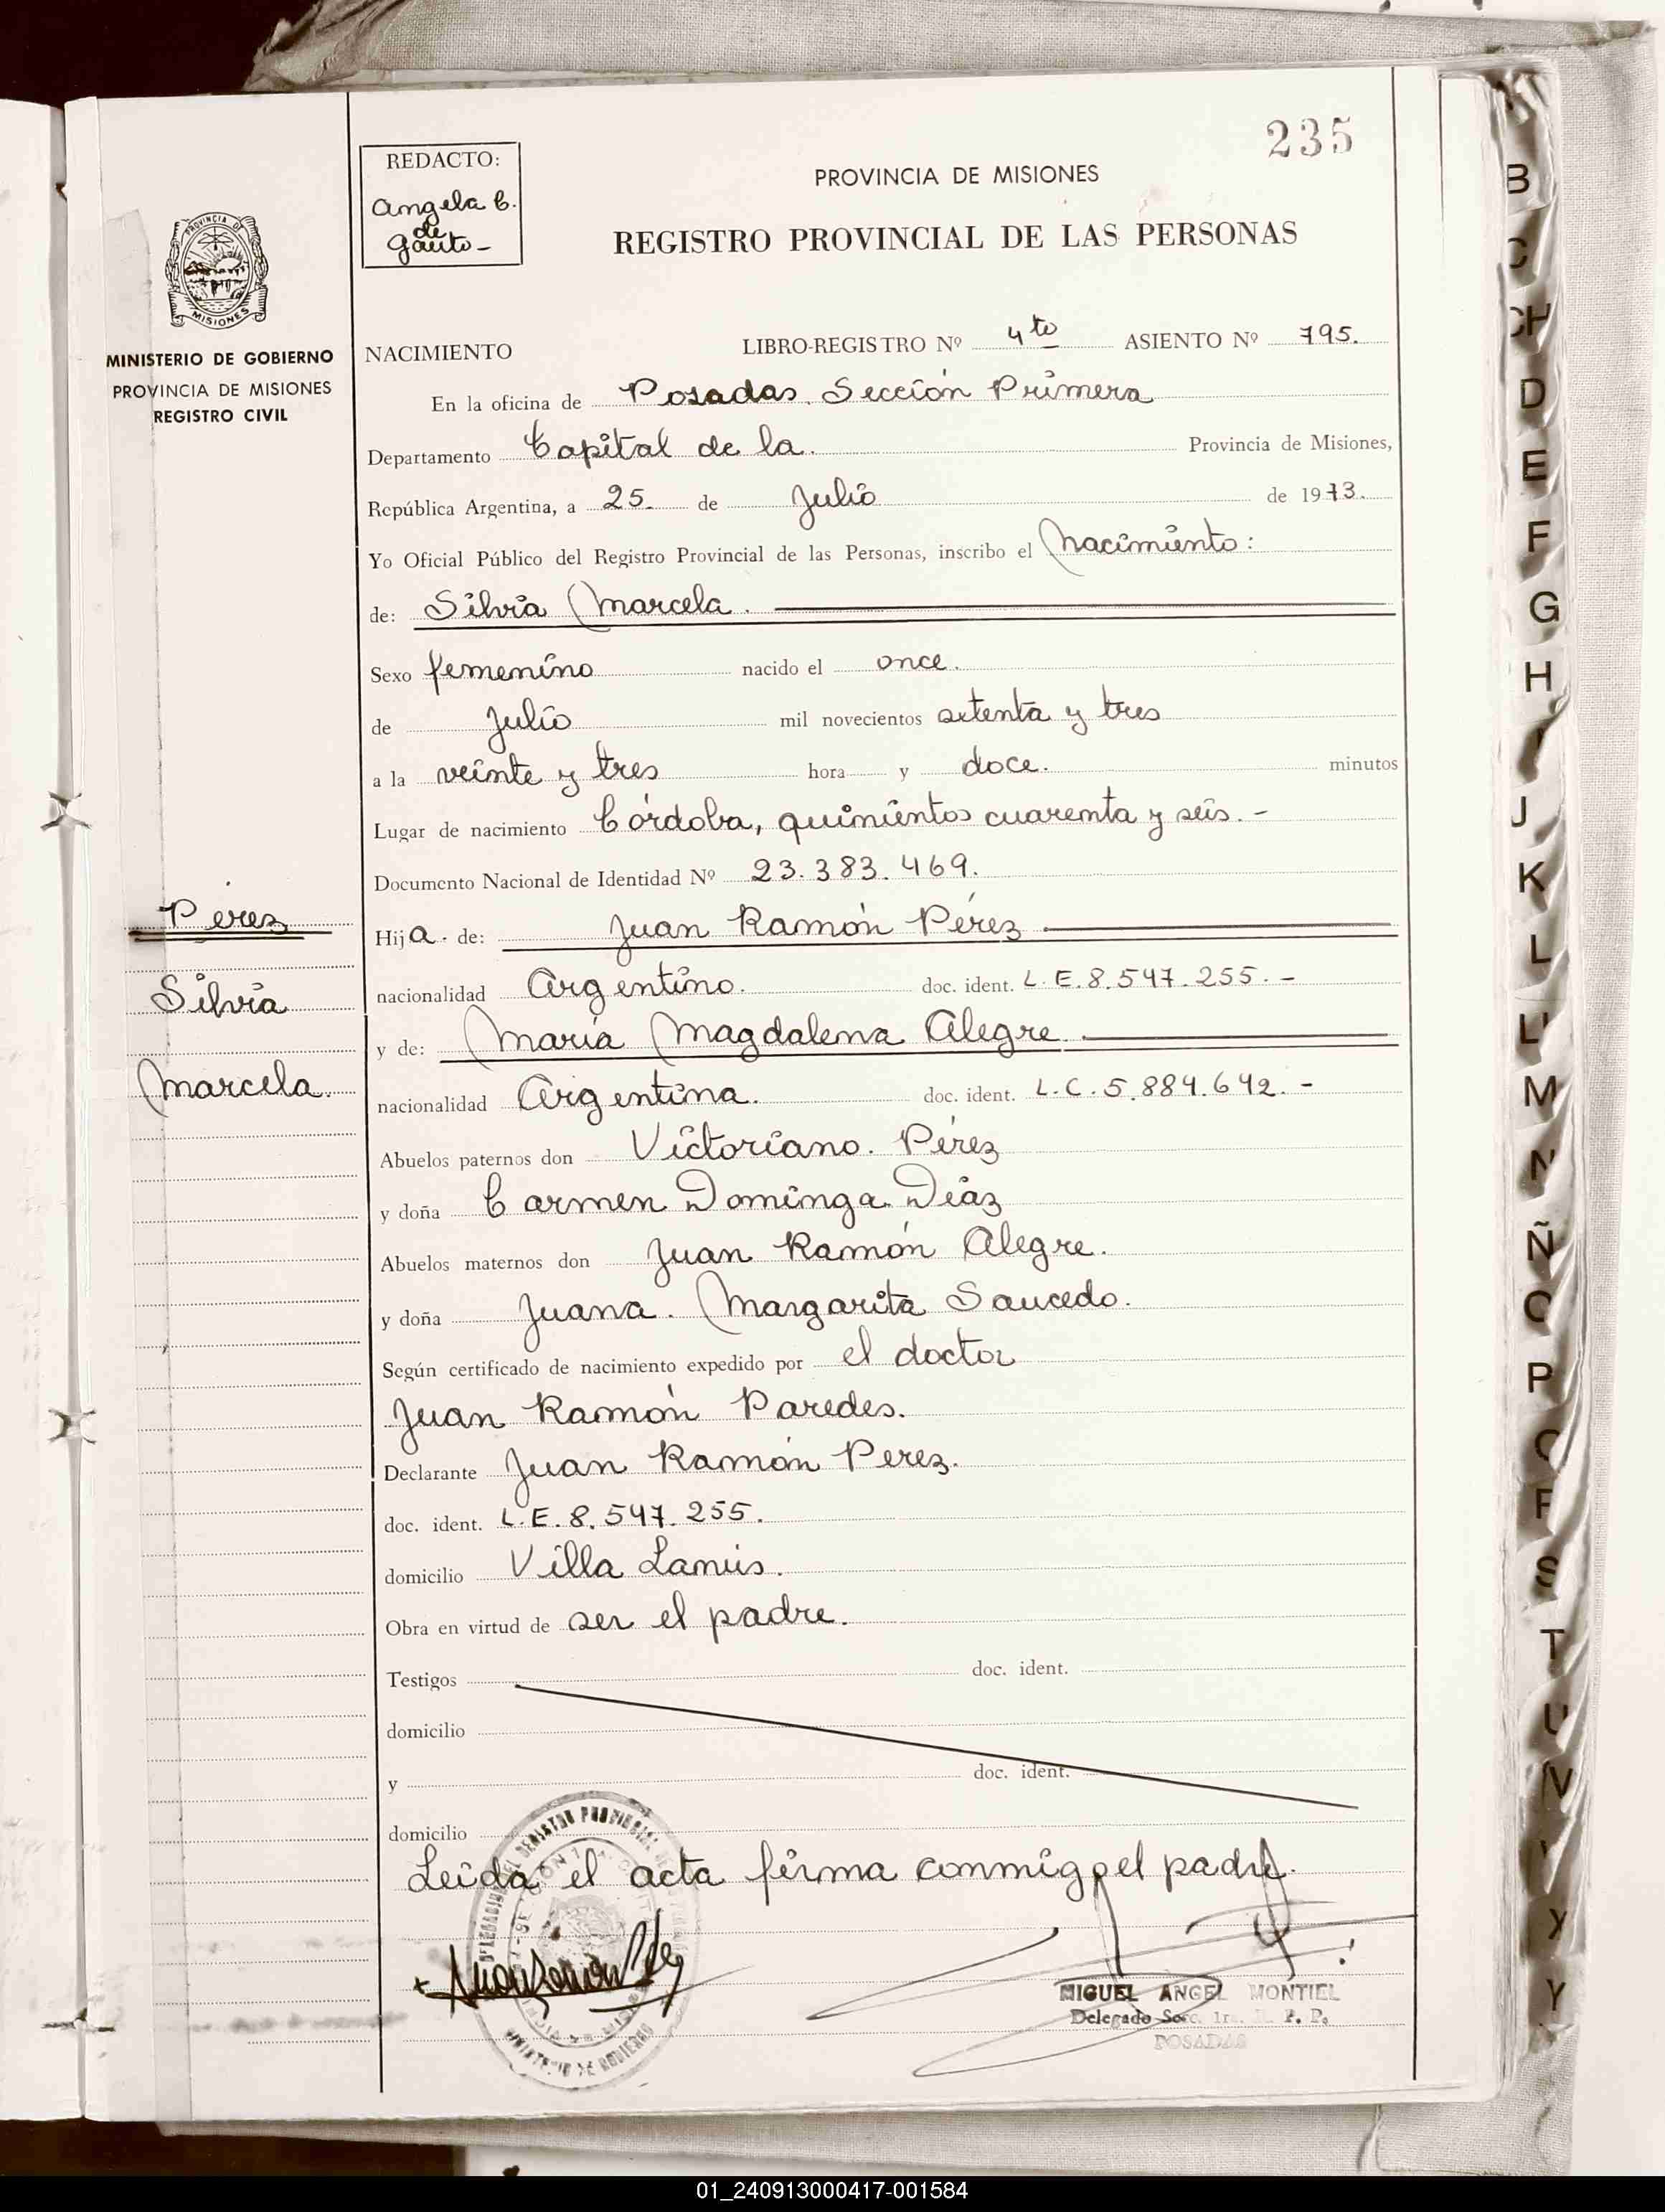 235
REDACTO:
Angela C.
de
Gauto-
PROVINCIA DE MISIONES
REGISTRO PROVINCIAL DE LAS PERSONAS
PROVINCIA DE
MISIONES
MINISTERIO DE GOBIERNO
PROVINCIA DE MISIONES
REGISTRO CIVIL
NACIMIENTO LIBRO-REGISTRO Nº 4to ASIENTO Nº 795.
En la oficina de Posadas. Sección Primera
Departamento Capital de la. Provincia de Misiones,
República Argentina, a 25. de Julio de 1973.
Yo Oficial Público del Registro Provincial de las Personas, inscribo el Nacimiento:
de: Silvia Marcela.
Sexo femenino nacido el once.
de Julio mil novecientos setenta y tres
a la veinte y tres hora y doce. minutos
Lugar de nacimiento Córdoba, quinientos cuarenta y seis. -
Documento Nacional de Identidad Nº 23.383.469.
Perez
Silvia
Marcela.
Hija. de: Juan Ramón Pérez
nacionalidad Argentino. doc. ident. L.E.8.547.255.-
y de: María Magdalena Alegre.
nacionalidad Argentina. doc. ident. L.C.5.884.642.-
Abuelos paternos don Victoriano. Pérez
y doña Carmen Dominga Díaz
Abuelos maternos don Juan Ramón Alegre.
y doña Juana. Margarita Saucedo.
Según certificado de nacimiento expedido por el doctor
Juan Ramón Paredes.
Declarante Juan Ramón Perez.
doc. ident. L.E.8.547.255.
domicilio Villa Lanús.
Obra en virtud de ser el padre.
Testigos doc. ident.
domicilio
y doc. ident.
domicilio
Leida el acta firma conmigo el padre.
MIGUEL ANGEL MONTIEL
Delegado Secc. 1ra. R. P. P.
POSADAS
B
C
CH
D
E
F
G
H
I
J
K
L
LL
M
N
Ñ
O
P
Q
R
S
T
U
V
X
Y
01_240913000417-001584